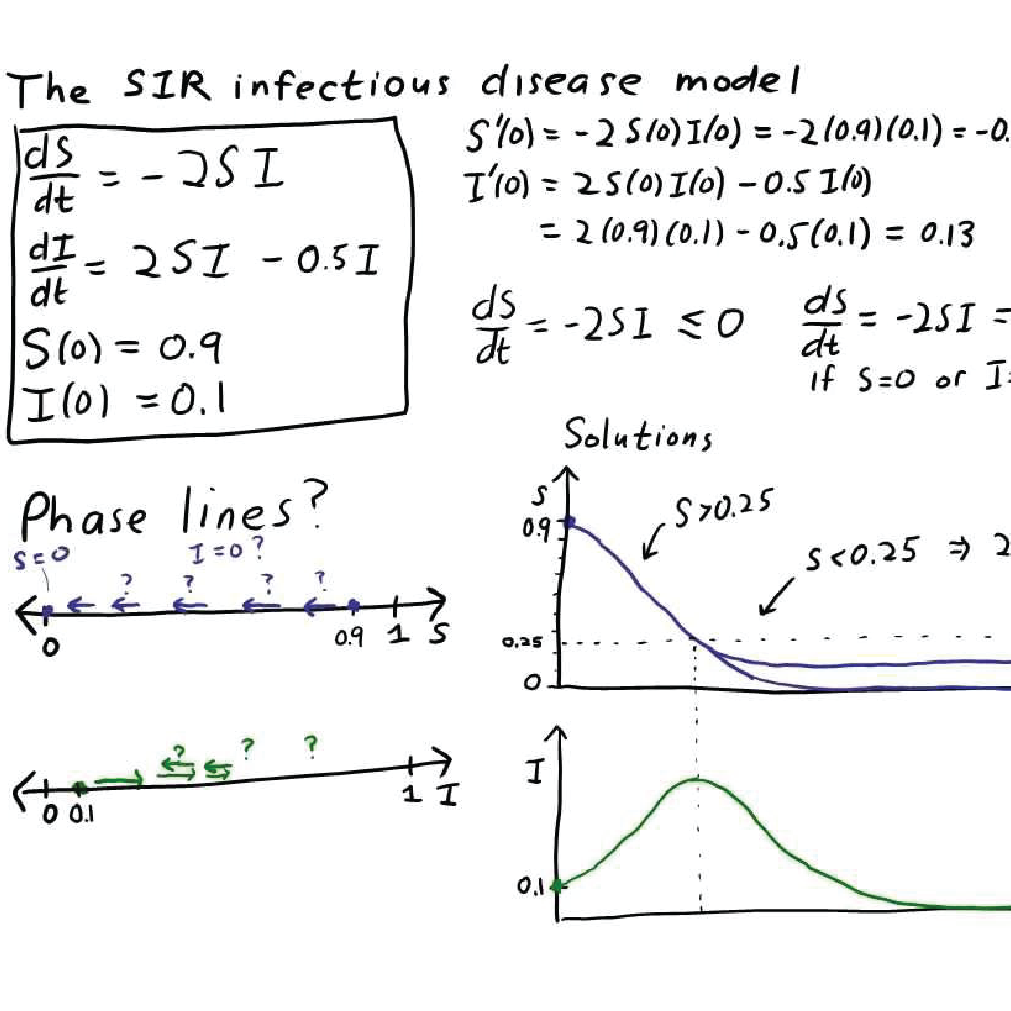 The SIR infectious disease model
dS/dt = -2SI
dI/dt = 2SI - 0.5I
S(0) = 0.9
I(0) = 0.1
S'(0) = -2S(0)I(0) = -2(0.9)(0.1) = -0.
I'(0) = 2S(0)I(0) - 0.5I(0)
= 2(0.9)(0.1) - 0.5(0.1) = 0.13
dS/dt = -2SI ≤ 0
dS/dt = -2SI =
if S=0 or I=
Phase lines?
S=0 I=0?
? ? ? ?
0 0.9 1 S
? ? ?
0 0.1 1 I
Solutions
S
0.9
S>0.25
S<0.25 ⇒ 2
0.25
0
I
0.1